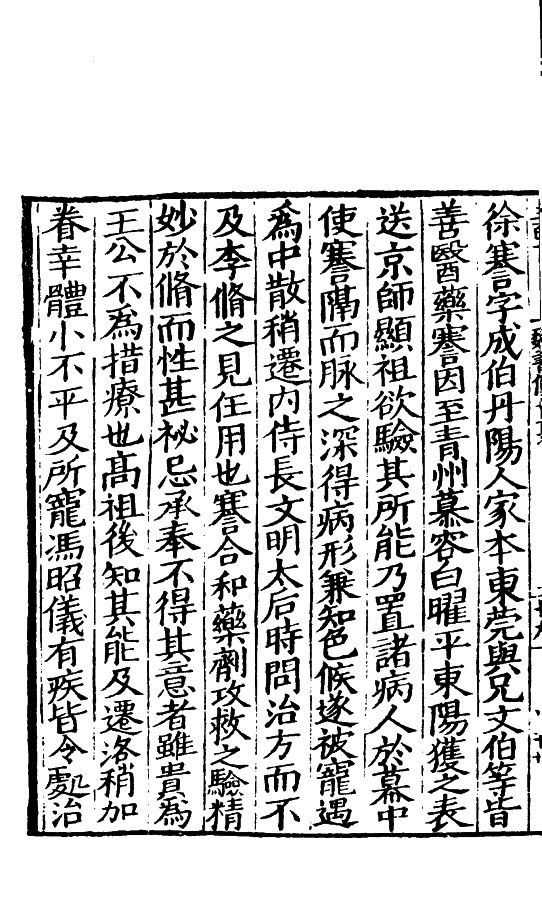 徐謇字成伯丹陽人家本東莞與兄文伯等皆
善醫藥謇因至青州慕容白曜平東陽獲之表
送京師顯祖欲驗其所能乃置諸病人於幕中
使謇隔而脉之深得病形兼知色候遂被寵遇
爲中散稍遷内侍長文明太后時問治方而不
及李脩之見任用也謇合和藥劑攻救之驗精
妙於脩而性甚祕忌承奉不得其意者雖貴爲
王公不爲措療也高祖後知其能及遷洛稍加
眷幸體小不平及所寵馮昭儀有疾皆令處治